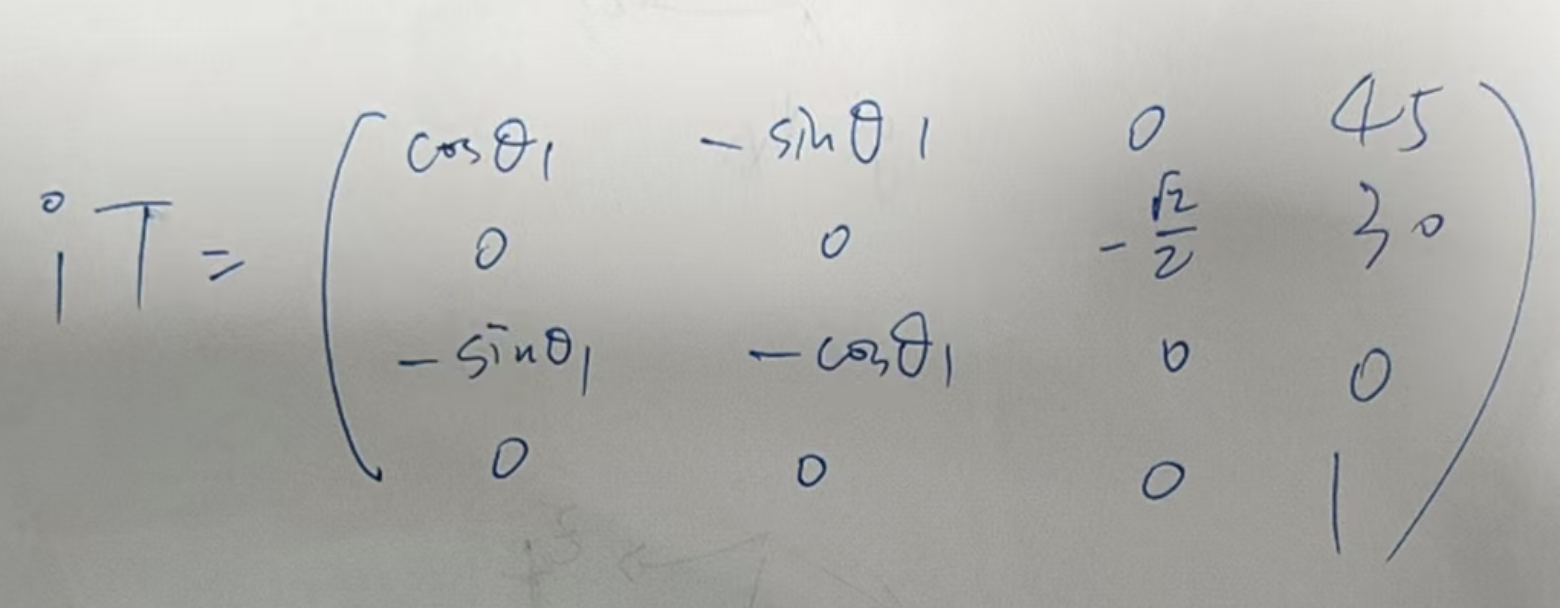 cosθ₁ -sinθ₁ 0 45
⁰₁T = 0 0 -√2/2 30
-sinθ₁ -cosθ₁ 0 0
0 0 0 1